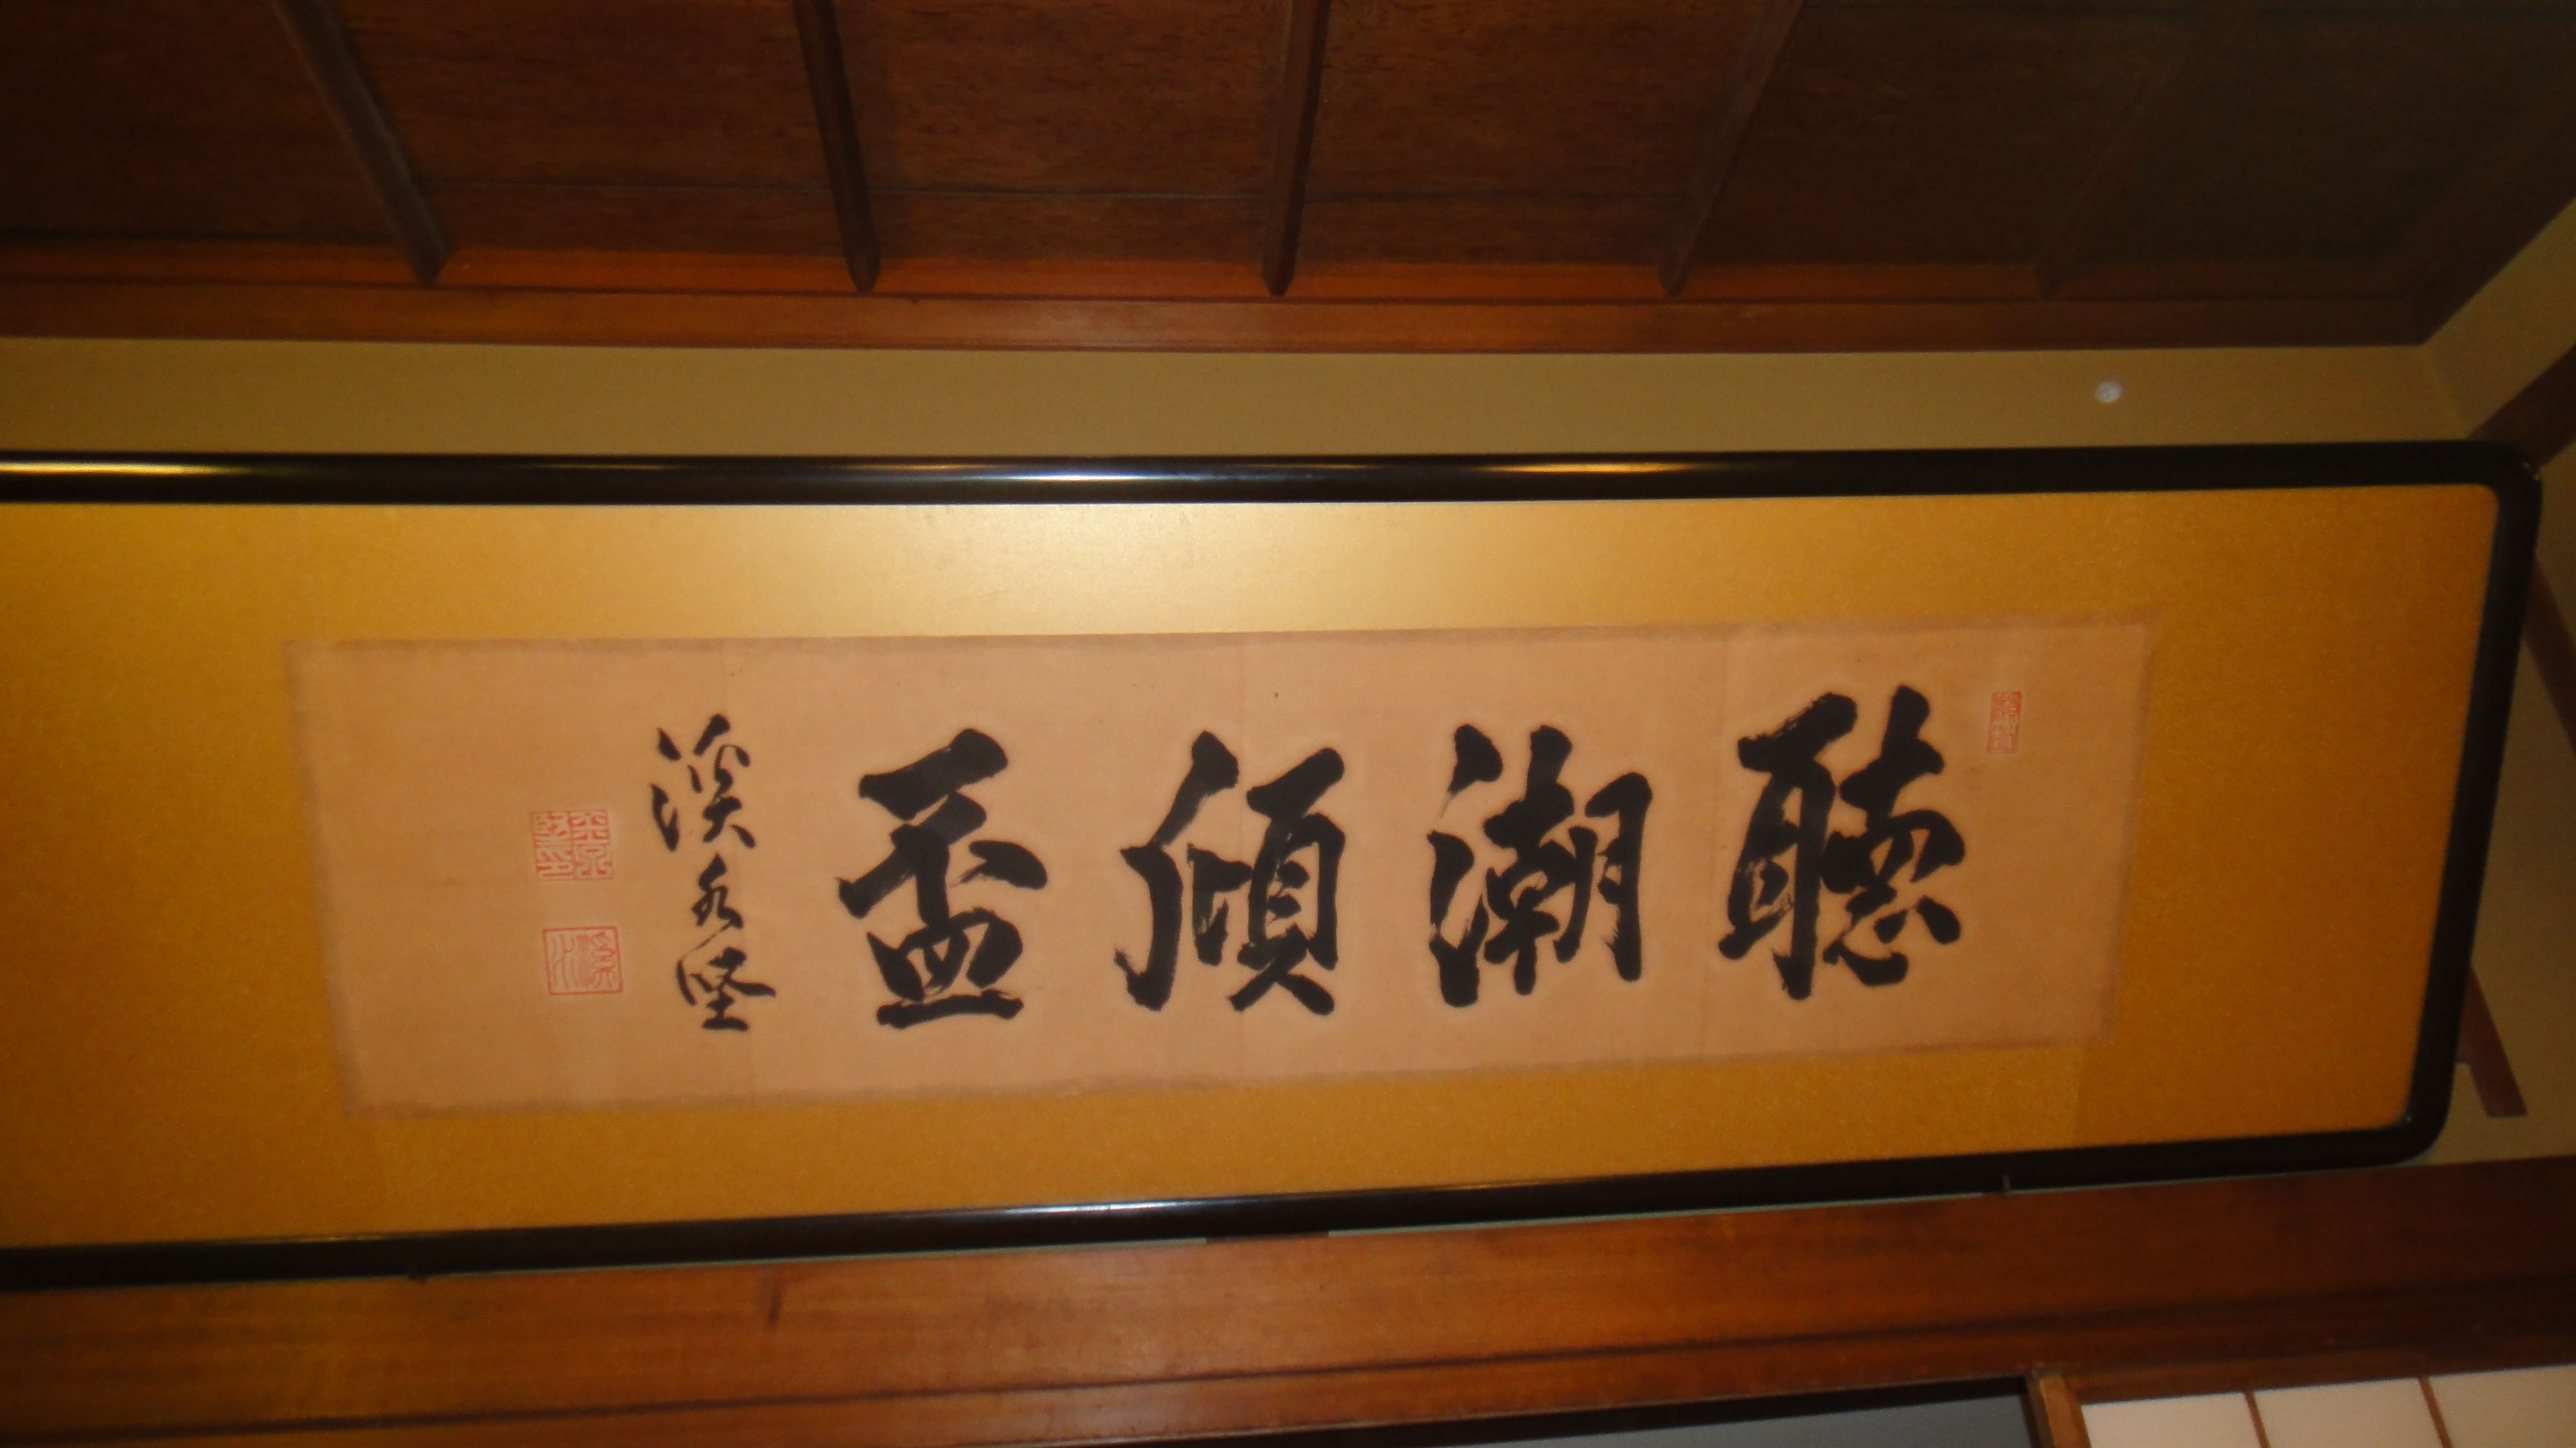 聴潮傾盃
渓水堅